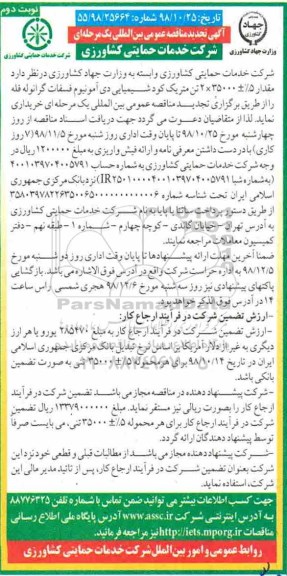 نوبت دوم
تاریخ: ۹۸/۱۰/۲۵ شماره: ۵۵/۹۸/۳۵۶۶۴
آگهی تجدید مناقصه عمومی بین المللی یک مرحله ای
شرکت خدمات حمایتی کشاورزی
جهاد
وزارت جهاد کشاورزی
شرکت خدمات حمایتی کشاورزی
شرکت خدمات حمایتی کشاورزی وابسته به وزارت جهاد کشاورزی در نظر دارد
مقدار ۵٪±۳۵۰۰۰×۲ تن متریک کود شیمیایی دی آمونیوم فسفات گرانوله فله
را از طریق برگزاری تجدید مناقصه عمومی بین المللی یک مرحله ای خریداری
نماید. لذا از متقاضیان دعوت می گردد جهت دریافت اسناد مناقصه از روز
چهارشنبه مورخ ۹۸/۱۰/۲۵ تا پایان وقت اداری روز شنبه مورخ ۹۸/۱۱/۵ (۷ روز
کاری) با در دست داشتن معرفی نامه و ارائه فیش واریزی به مبلغ ۱۲۰۰۰۰۰ ریال در
وجه شرکت خدمات حمایتی کشاورزی به شماره حساب ۴۰۰۱۰۳۹۷۰۴۰۰۵۷۹۱
(به شماره شبا IR۲۵۰۱۰۰۰۰۴۰۰۱۰۳۹۷۰۴۰۰۵۷۹۱) نزد بانک مرکزی جمهوری
اسلامی ایران تحت شناسه شماره
از طریق دستور پرداخت ساتنا یا پایا به نام شرکت خدمات حمایتی کشاورزی
به آدرس تهران - خیابان گاندی - کوچه چهارم - شماره ۱ - طبقه نهم - دفتر
کمیسیون معاملات مراجعه نمایند.
ضمناً آخرین مهلت ارائه پیشنهادها تا پایان وقت اداری روز دوشنبه مورخ
۹۸/۱۲/۵ به اداره حراست شرکت واقع در آدرس فوق الاشاره می باشد. بازگشایی
پاکتهای پیشنهادی نیز روز سه شنبه مورخ ۹۸/۱۲/۶ هجری شمسی راس ساعت
۱۴ در آدرس فوق الذکر خواهد بود.
ارزش تضمین شرکت در فرآیند ارجاع کار:
-ارزش تضمین شرکت در فرآیند ارجاع کار به مبلغ ۲۸۵۴۷۰ یورو یا هر ارز
دیگری به غیر از دلار آمریکا بر اساس نرخ تبدیل بانک مرکزی جمهوری اسلامی
ایران در تاریخ ۹۸/۱۰/۱۴ برای هر محموله ۵٪±۳۵۰۰۰ تنی به صورت تضمین
بانکی باشد.
-شرکت پیشنهاد دهنده در مناقصه مجاز می باشد تضمین شرکت در فرآیند
ارجاع کار را بصورت ریالی نیز مستقر نماید. مبلغ ۱۳۳۷۹۰۰۰۰۰۰ ریال تضمین
شرکت در فرآیند ارجاع کار برای هر محموله ۵٪±۳۵۰۰۰ تنی، می بایست صرفاً
توسط پیشنهاد دهندگان ارائه گردد.
-شرکت پیشنهاد دهنده مجاز می باشد از مطالبات قبلی و قطعی خود نزد این
شرکت بعنوان تضمین شرکت در فرآیند ارجاع کار، پس از تائید مدیر مالی این
شرکت، استفاده نماید.
جهت کسب اطلاعات بیشتر می توانید ضمن تماس با شماره تلفن ۸۸۷۷۶۳۲۵
به آدرس اینترنتی شرکت www.assc.ir آدرس پایگاه ملی اطلاع رسانی
مناقصات http://iets.mporg.ir نیز مراجعه فرمائید.
روابط عمومی و امور بین الملل شرکت خدمات حمایتی کشاورزی